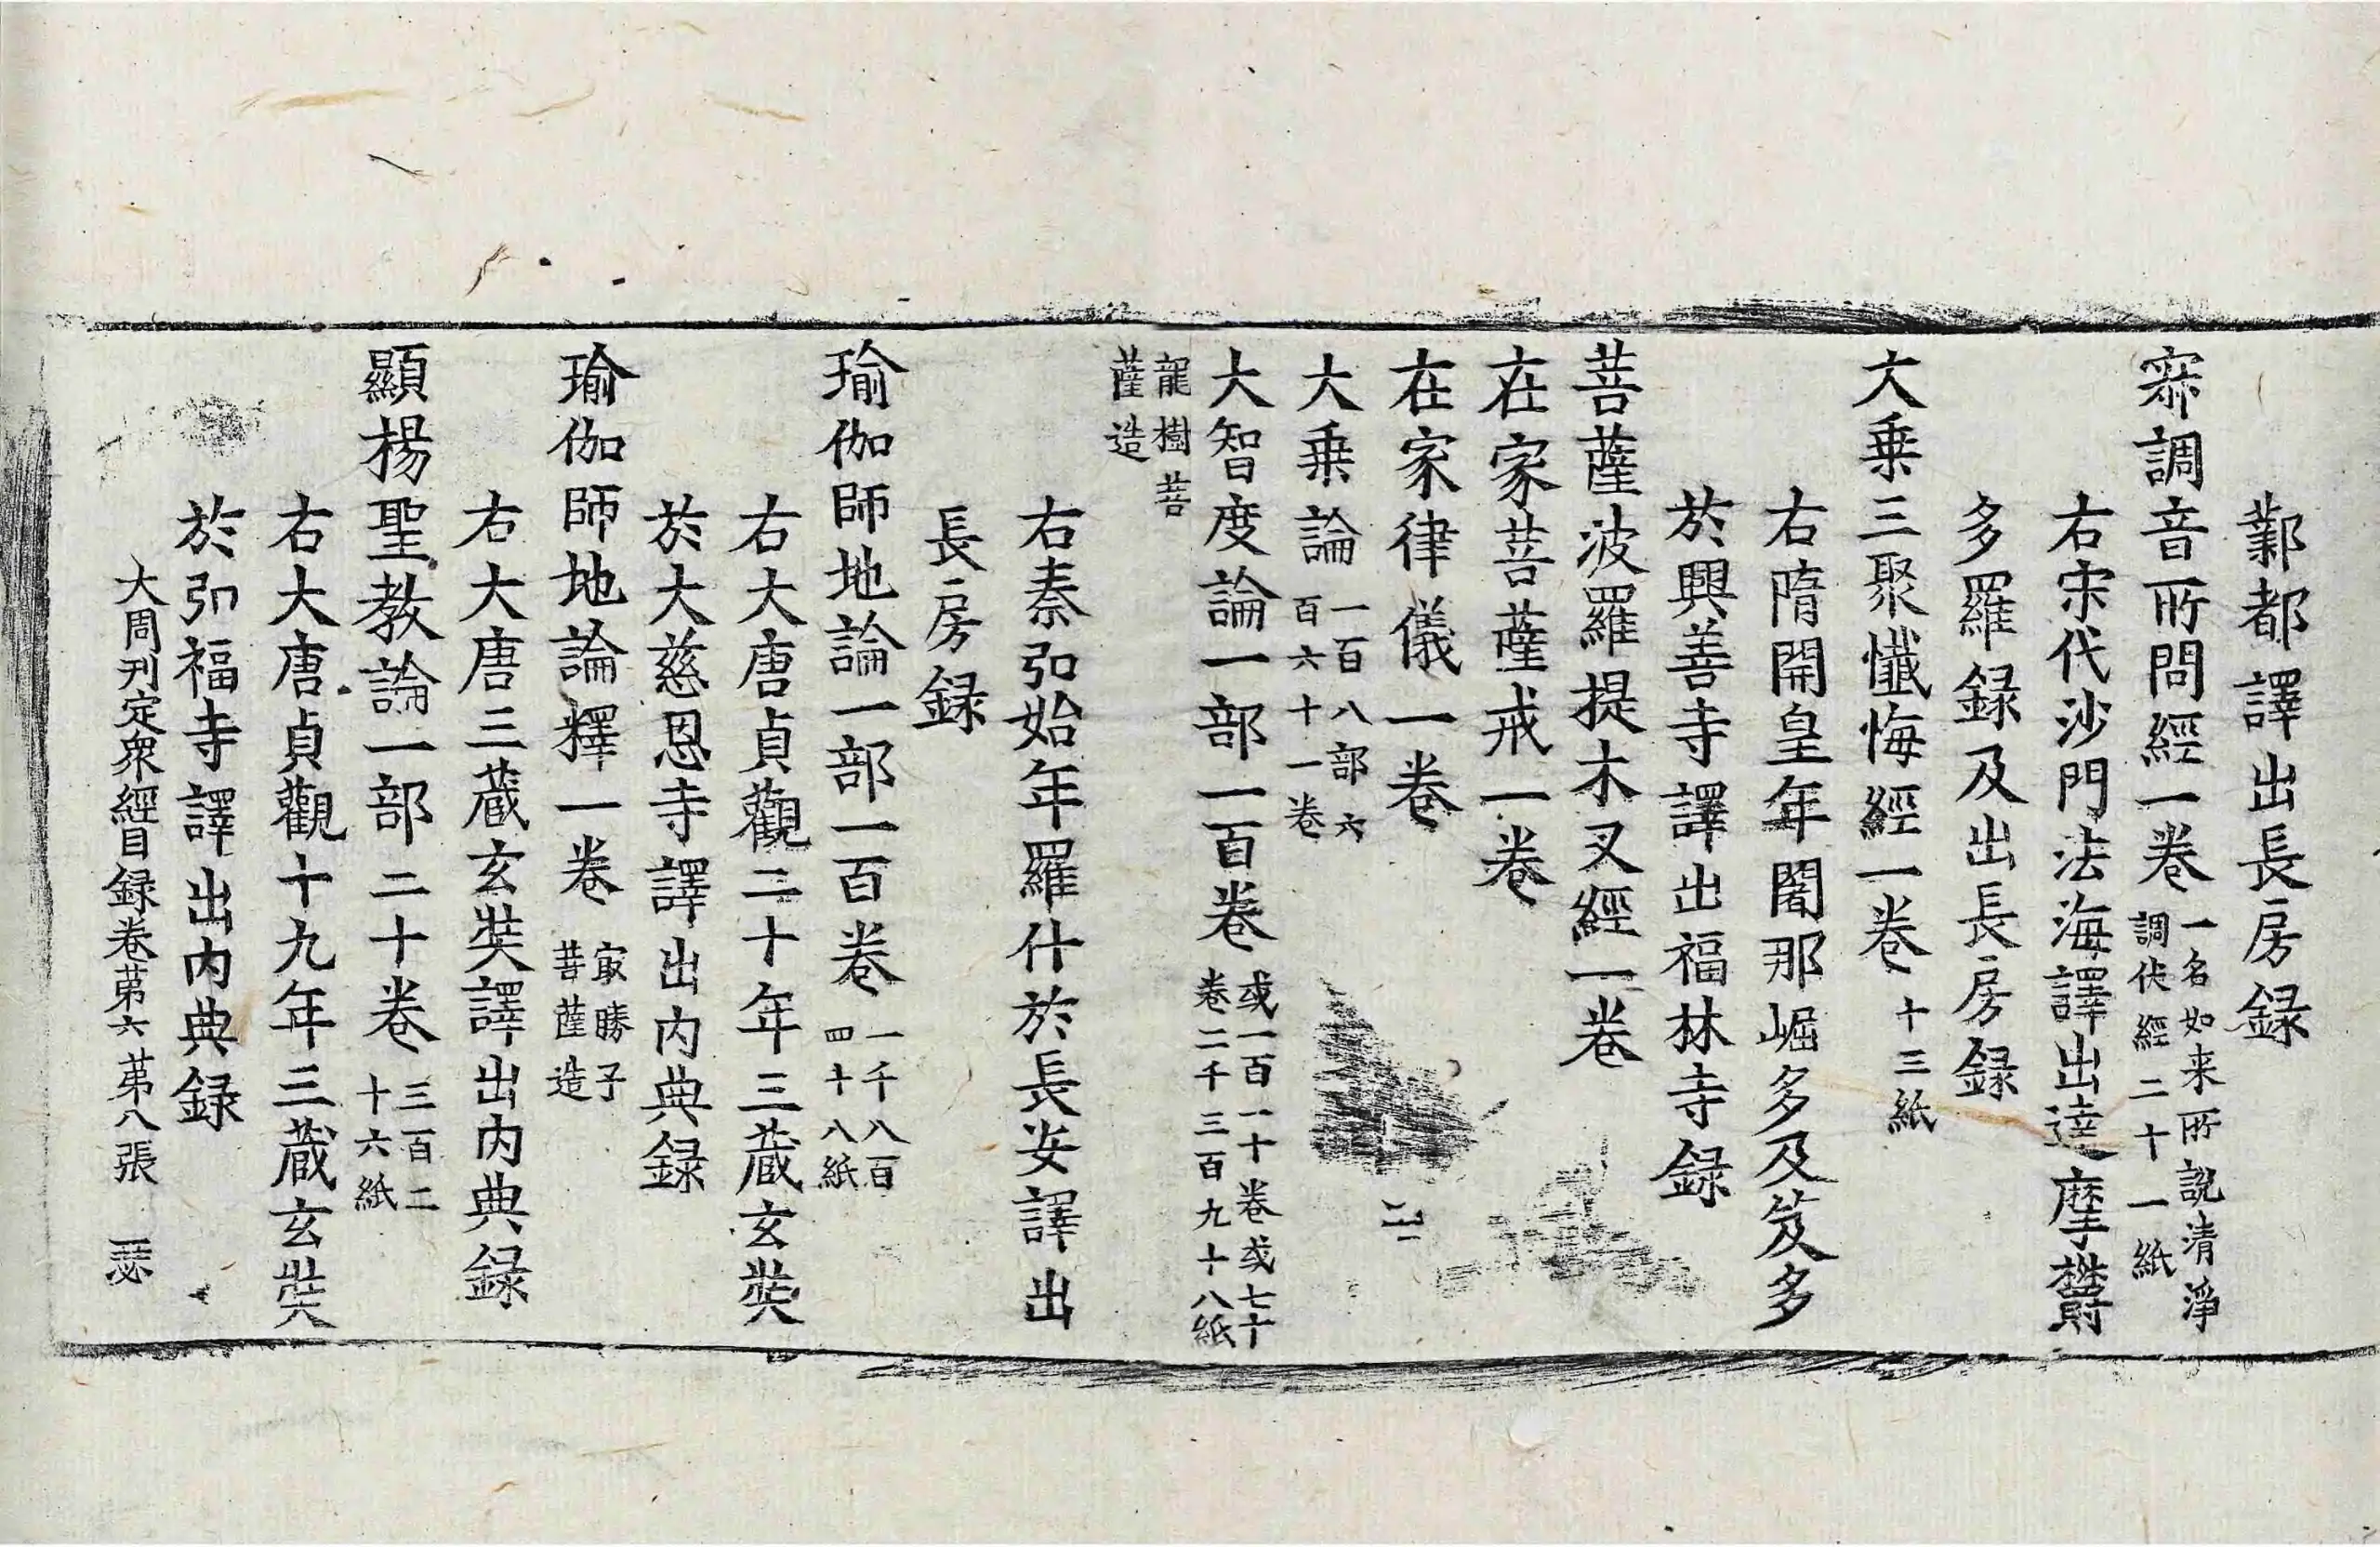 鄴都譯出長房録
寂調音所問經一卷一名如来所說清淨調伏經二十一紙
右宋代沙門法海譯出達摩欝
多羅録及出長房録
大乗三聚懺悔經一卷十三紙
右隋開皇年闍那崛多及笈多
於興善寺譯出福林寺録
菩薩波羅提木叉經一卷
在家菩薩戒一卷
在家律儀一卷
大乗論一百八部六百六十一卷
大智度論一部一百卷或一百一十卷或七十卷二千三百九十八紙
龍樹菩薩造
右秦弘始年羅什於長安譯出
長房録
瑜伽師地論一部一百卷一千八百四十八紙
右大唐貞觀二十年三蔵玄奘
於大慈恩寺譯出内典録
瑜伽師地論釋一卷㝡勝子菩薩造
右大唐三蔵玄奘譯出内典録
顯楊聖教論一部二十卷三百二十六紙
右大唐貞觀十九年三蔵玄奘
於弘福寺譯出内典録
大周刊定衆經目録卷苐六苐八張 瑟